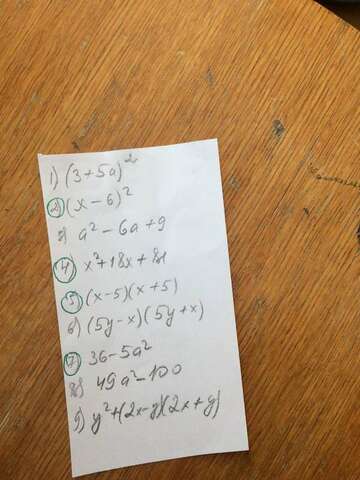 1) (3+5a)²
2) (x-6)²
3) a²-6a+9
4) x²+18x+81
5) (x-5)(x+5)
6) (5y-x)(5y+x)
7) 36-5a²
8) 49a²-100
9) y²+(2x-y)(2x+y)